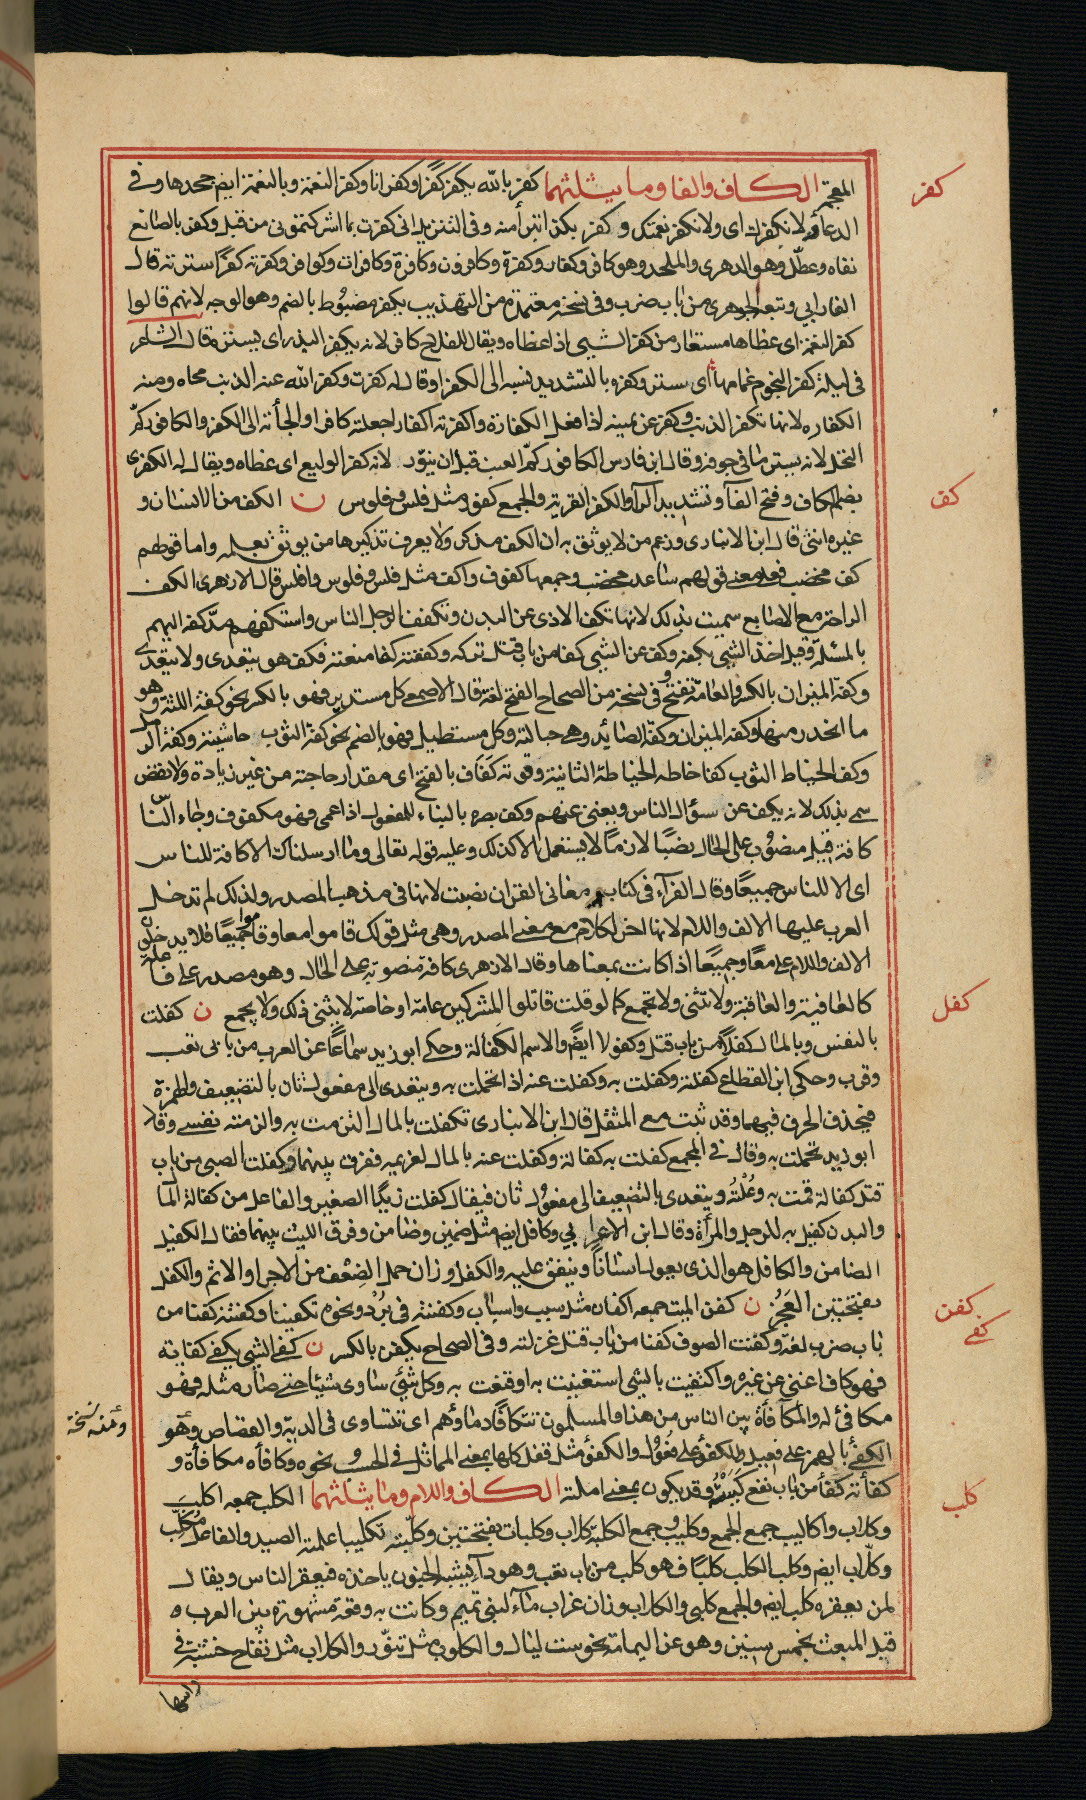 المعجمة الكاف والفا وما يثلثهما كفر بالله يكفر كفرًا وكفرانا وكفر النعمة وبالنعمة ايضا جحدها وفي
الدعاء ولا نكفرك اي ولا نكفر نعمتك وكفر بكذا تبرأ منه وفي التنزيل اني كفرت بما اشركتموني من قبل وكفر بالصانع
نفاه وعطّل وهو الدهري والملحد وهو كافر وكفار وكفرة وكافرون وكافرة وكافرات وكوافر وكفرته كفرًا سترته قال
الفارابي وتبعه الجوهري من باب ضرب وفي نسخة معتمدة من التهذيب يكفر مضبوط بالضم وهو الوجه لانهم قالوا
كفر النعمة اي غطاها مستعار من كفر الشيء اذا غطاه ويقال للفلاح كافر لانه يكفر البذر اي يستره قال الشاعر
في ليلة كفر النجوم غمامها اي ستر وكفره بالتشديد نسبه الى الكفر او قال له كفرت وكفر الله عنه الذنب محاه ومنه
الكفارة لانها تكفر الذنب وكفر عن يمينه اذا فعل الكفارة واكفرته اكفارا جعلته كافرا او الجأته الى الكفر والكافور كمّ
النخل لانه يستر ما في جوفه وقال ابن فارس الكافور كمّ العنب قبل ان ينوّر لانه كفر الوليع اي غطاه ويقال له الكفرى
بضم الكاف وفتح الفآ وتشديد الرآ والكفر القرية والجمع كفور مثل فلس وفلوس ن الكف من الانسان و
غيره انثى قال ابن الانباري وزعم من لا يوثق به ان الكف مذكر ولا يعرف تذكيرها من يوثق بعلمه واما قولهم
كف مخضب فعلى معنى قولهم ساعد مخضب وجمعها كفوف واكف مثل فلس وفلوس وافلس قال الازهري الكف
الراحة مع الاصابع سميت بذلك لانها تكف الاذى عن البدن وتكفف الرجل الناس واستكفهم مدّ كفه اليهم
بالمسئلة وقيل اخذ الشيء بكفه وكف عن الشيء كفا من باب قتل تركه وكففته كفا منعته فكف هو يتعدى ولا يتعدى
وكفة الميزان بالكسر والعامة تفتح وفي نسخة من الصحاح الفتح لغة قال الاصمعي كل مستدير فهو بالكسر نحو كفة اللثة وهو
ما انحدر منها وكفة الميزان وكفة الصائد وهي حبالته وكل مستطيل فهو بالضم نحو كفة الثوب حاشيته وكفة الرمل
وكف الخياط الثوب كفا خاطه الخياطة الثانية وقوته كفاف بالفتح اي مقدار حاجته من غير زيادة ولا نقص
سمي بذلك لانه يكف عن سؤال الناس ويغني عنهم وكف بصره بالبناء للمفعول اذا عمي فهو مكفوف وجاء الناس
كافة قيل منصوب على الحال نصبًا لازمًا لا يستعمل الا كذلك وعليه قوله تعالى وما ارسلناك الا كافة للناس
اي الا للناس جميعًا وقال الفرآء في كتاب معاني القرآن نصبت لانها في مذهب المصدر ولذلك لم تدخل
العرب عليها الالف واللام لانها اخر الكلام مع معنى المصدر وهي مثل قولك قاموا معا وقاموا جميعًا فلا يدخلون
الالف واللام على معًا وجميعًا اذا كانت بمعناها وقال الازهري كافة منصوبة على الحال وهو مصدر على فاعلة
كالعافية والعاقبة ولا تثنى ولا تجمع كما لو قلت قاتلوا المشركين عامة او خاصة لا يثنى ذلك ولا يجمع ن كفلت
بالنفس وبالمال كفلًا من باب قتل وكفولا ايضًا والاسم الكفالة وحكى ابو زيد سماعًا عن العرب من بابي تعب
وقرب وحكى ابن القطاع كفلته وكفلت به وكفلت عنه اذا تحملت به ويتعدى الى مفعول ثان بالتضعيف والهمزة
فيحذف الحرف فيهما وقد ثبت مع المثقل قال ابن الانباري تكفلت بالمال التزمت به والزمته نفسي وقال
ابو زيد تحملت به وقال في المجمع كفلت به كفالة وكفلت عنه بالمال لغريمه ففرق بينهما وكفلت الصبي من باب
قتل كفالة قمت به وعُلْتُه ويتعدى بالتضعيف الى مفعول ثان فيقال كفلت زيدًا الصغير والفاعل من كفالة المال
والبدن كفيل به للرجل والمرأة وقال ابن الاعرابي وكافل ايضا مثل ضمين وضامن وفرق الليث بينهما فقال الكفيل
الضامن والكافل هو الذي يعول انسانًا وينفق عليه والكفل وزان حمل الضعف من الاجر او الاثم والكفل
بفتحتين العَجُزُ ن كفن الميت جمعه اكفان مثل سبب واسباب وكفنته في بُرْد ونحوه تكفينا وكفنته كفنا من
باب ضرب لغة وكفنت الصوف كفنا من باب قتل غزلته وفي الصحاح يكفن بالكسر ن كفى الشيء يكفي كفاية
فهو كاف اغنى عن غيره واكتفيت بالشيء استغنيت به او قنعت به وكل شيء ساوى شيئا حتى صار مثله فهو
مكافئ له والمكآفأة بين الناس من هذا والمسلمون تتكافأ دماؤهم اي تتساوى في الدية والقصاص ومنه نسخة وهو
الكفئ بالهمز على فعيل والكفؤ على فعول والكفؤ مثل قفل كلها بمعنى المماثل في الحسب ونحوه وكافأه مكافأة و
كفأته كفأ من باب نفع كببته وقد يكون بمعنى املته الكاف واللام وما يثلثهما الكلب جمعه اكلب
وكلاب واكاليب جمع الجمع وكليب وجمع الكلبة كلاب وكلبات بفتحتين وكلّبته تكليبا علمته الصيد والفاعل مُكَلِّب
وكلّاب ايضا وكلب الكلب كلبًا فهو كلب من باب تعب وهو دآء يشبه الجنون ياخذه فيعقر الناس ويقال
لمن يعقره كلب ايضا والجمع كلبى والكلاب وزان غراب مآء لبني تميم وكانت به وقعة مشهورة بين العرب
قبل المبعث بخمس سنين وهو عن اليمامة نحو ست ليال والكلوب مثل تنّور والكلاب مثل تفاح خشبة في
راسها
كفر
كف
كفل
كفن
كفى
كلب